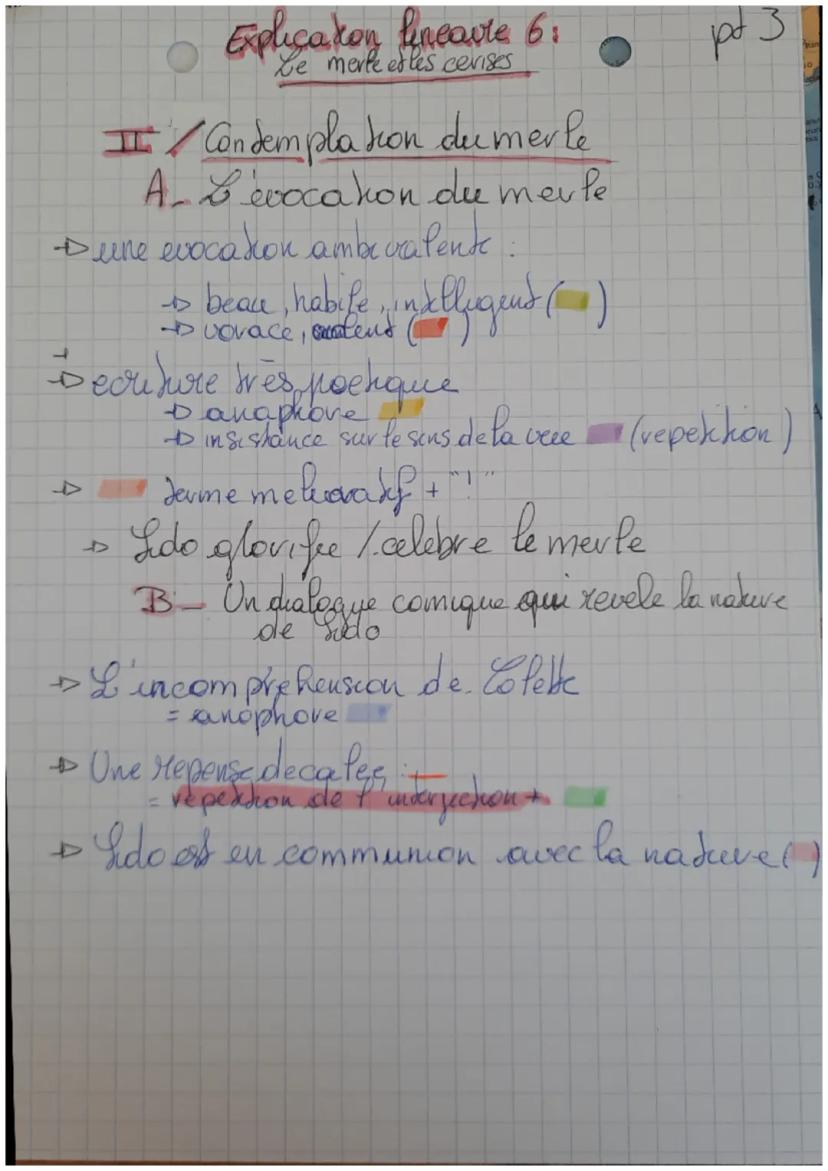 Explication lineaire 6:
pt 3
Le merle et les cerises
II / Contemplation du merle
A - L'évocation du merle
→ une evocation ambivalente :
→ beau, habile, intelligent ( )
→ vorace, ( )
→
→ ecriture très poetique
→ anaphore
→ insistance sur le sens de la vue (repetition)
→ terme melioratif + "!"
→ Sido glorifie / celebre le merle
B - Un dialogue comique qui revele la nature
de Sido
→ L'incomprehension de Colette
= anophore
→ Une reponse decalee :
= repetition de l'interjection +
→ Sido est en communion avec la nature ( )